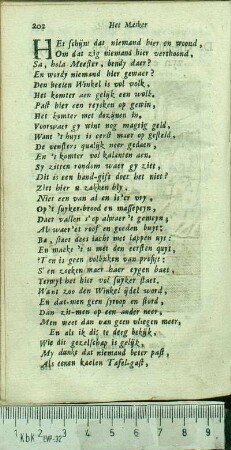 202 Het Masker
HEt schijnt dat niemand hier en woond,
Om dat zig niemand hier verthoond,
Sa, hola Meester, bendy daer?
En wordy niemand hier gewaer?
Den besten Winkel is vol volk,
Het komter aen gelijk een wolk,
Past hier een reysken op gewin,
Het komter met dozijnen in,
Voorwaer gy wint nog magtig geld,
Want 't huys is eerst maer op gesteld,
De vensters qualijk noer gedaen,
En 't komter vol kalanten aen.
Sy zitten rondom waer gy ziet,
Dit is een hand-gift doet het niet?
Ziet hier u zakken bly,
Niet een van al en is'er vry,
Op 't suyker-brood en massepeyn,
Daer vallen s'op alwaer 't gemeyn,
Al waer 't et roof en goeden buyt:
Ba, slaet dees iacht met lappen uyt:
En maekt 't u met den eersten quyt,
'Ten is geen volksken van profijt:
S' en zoeken maer haer eygen baet,
Terwijl het hier vol suyker staet.
Want zoo den Winkel ydel word,
En dat-men geen syroop en stord,
Dan ziet-men op een ander neer,
Men weet dan van geen vliegen meer,
En als ik dit te deeg bekijk,
Wie dit gezelschap is gelijk,
My dunkt dat niemand beter past,
Als eenen kaelen Tafel-gast,
1 2 3 4 5 6 7 8 9
KbK EVP-32